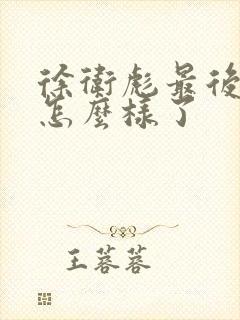 徐衛彪最後
怎麼樣了
王蓉蓉